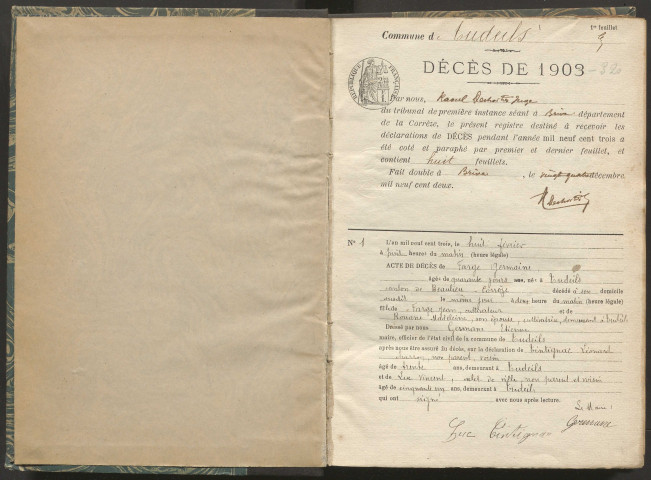 Commune d'Tudeils
1er feuillet
DÉCÈS DE 1903
RÉPUBLIQUE FRANÇAISE
Par nous, Raoul Juge
du tribunal de première instance séant à Brive département
de la Corrèze, le présent registre destiné à recevoir les
déclarations de DÉCÈS pendant l'année mil neuf cent trois a
été coté et paraphé par premier et dernier feuillet, et
contient huit feuillets.
Fait double à Brive, le vingt quatre décembre
mil neuf cent deux.
N° 1 L'an mil neuf cent trois, le huit février
à huit heures du matin (heure légale)
ACTE DE DÉCÈS de Farge Germaine
âgée de quarante jours ans, née à Tudeils
canton de Beaulieu Corrèze décédée à son domicile
le même jour à deux heure du matin (heure légale)
Fille de Farge Jean, cultivateur et de
Madeleine, son épouse, cultivatrice, demeurant à Tudeils
Dressé par nous Germane Etienne
maire, officier de l'état civil de la commune de Tudeils
après nous être assuré du décès, sur la déclaration de Teintignac Léonard
non parent, voisin
âgé de trente ans, demeurant à Tudeils
et de Vincent, de ville non parent et voisin
âgé de cinquante ans, demeurant à Tudeils
qui ont signé avec nous après lecture.
Le Maire
Germane